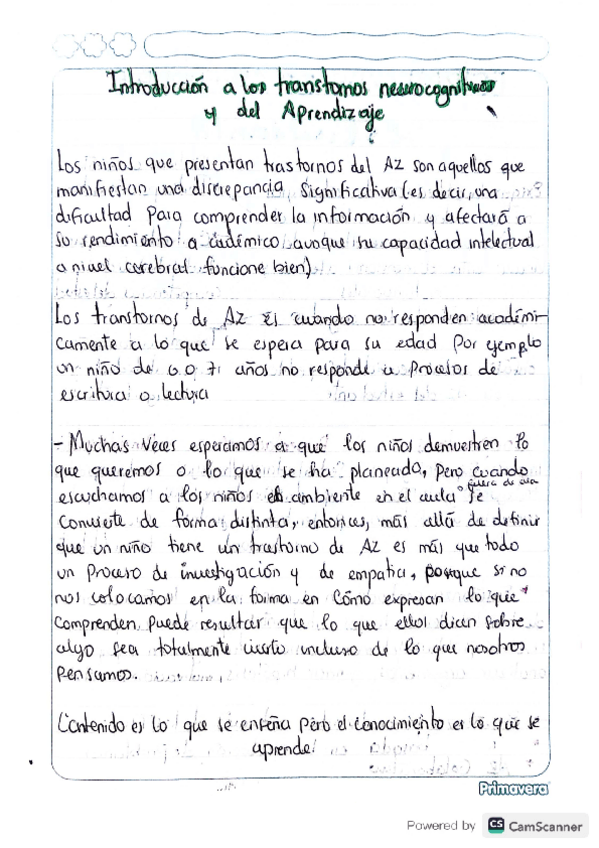 Introducción a los transtornos neurocognitivos
y del Aprendizaje
Los niños que presentan trastornos del Az son aquellos que
manifiestan una discrepancia significativa (es decir, una
dificultad para comprender la información y afectará a
su rendimiento académico aunque su capacidad intelectual
a nivel cerebral funcione bien)
Los transtornos de Az es cuando no responden académi-
camente a lo que se espera para su edad Por ejemplo
un niño de 6 o 7 años no responde a procesos de
escritura o lectura
- Muchas veces esperamos a que los niños demuestren lo
que queremos o lo que se ha planeado, pero cuando
escuchamos a los niños el ambiente en el aula o fuera de ella se
convierte de forma distinta, entonces, más allá de definir
que un niño tiene un trastorno de Az es más que todo
un proceso de investigación y de empatia, porque si no
nos colocamos en la forma en cómo expresan lo que
comprenden puede resultar que lo que ellos dicen sobre
algo sea totalmente cierto incluso de lo que nosotros
pensamos.
Contenido es lo que se enseña pero el conocimiento es lo que se
aprende
Primavera
Powered by CS CamScanner